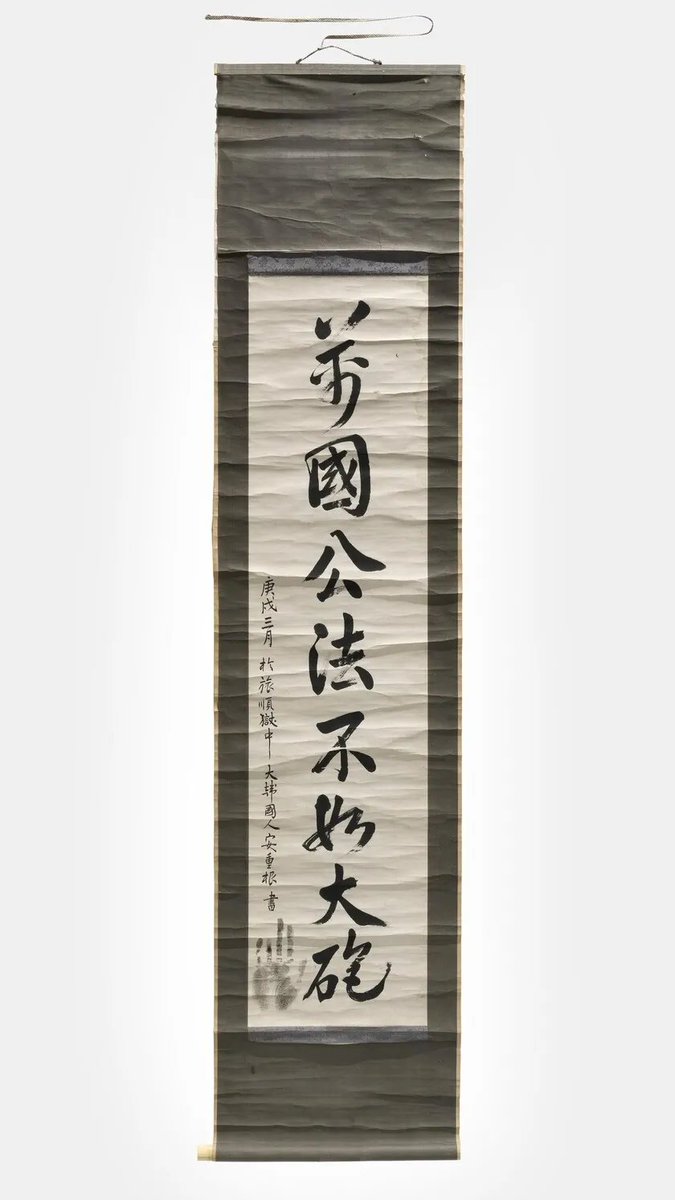 萬國公法不如大砲
庚戌三月 於旅順獄中 大韓國人 安重根 書